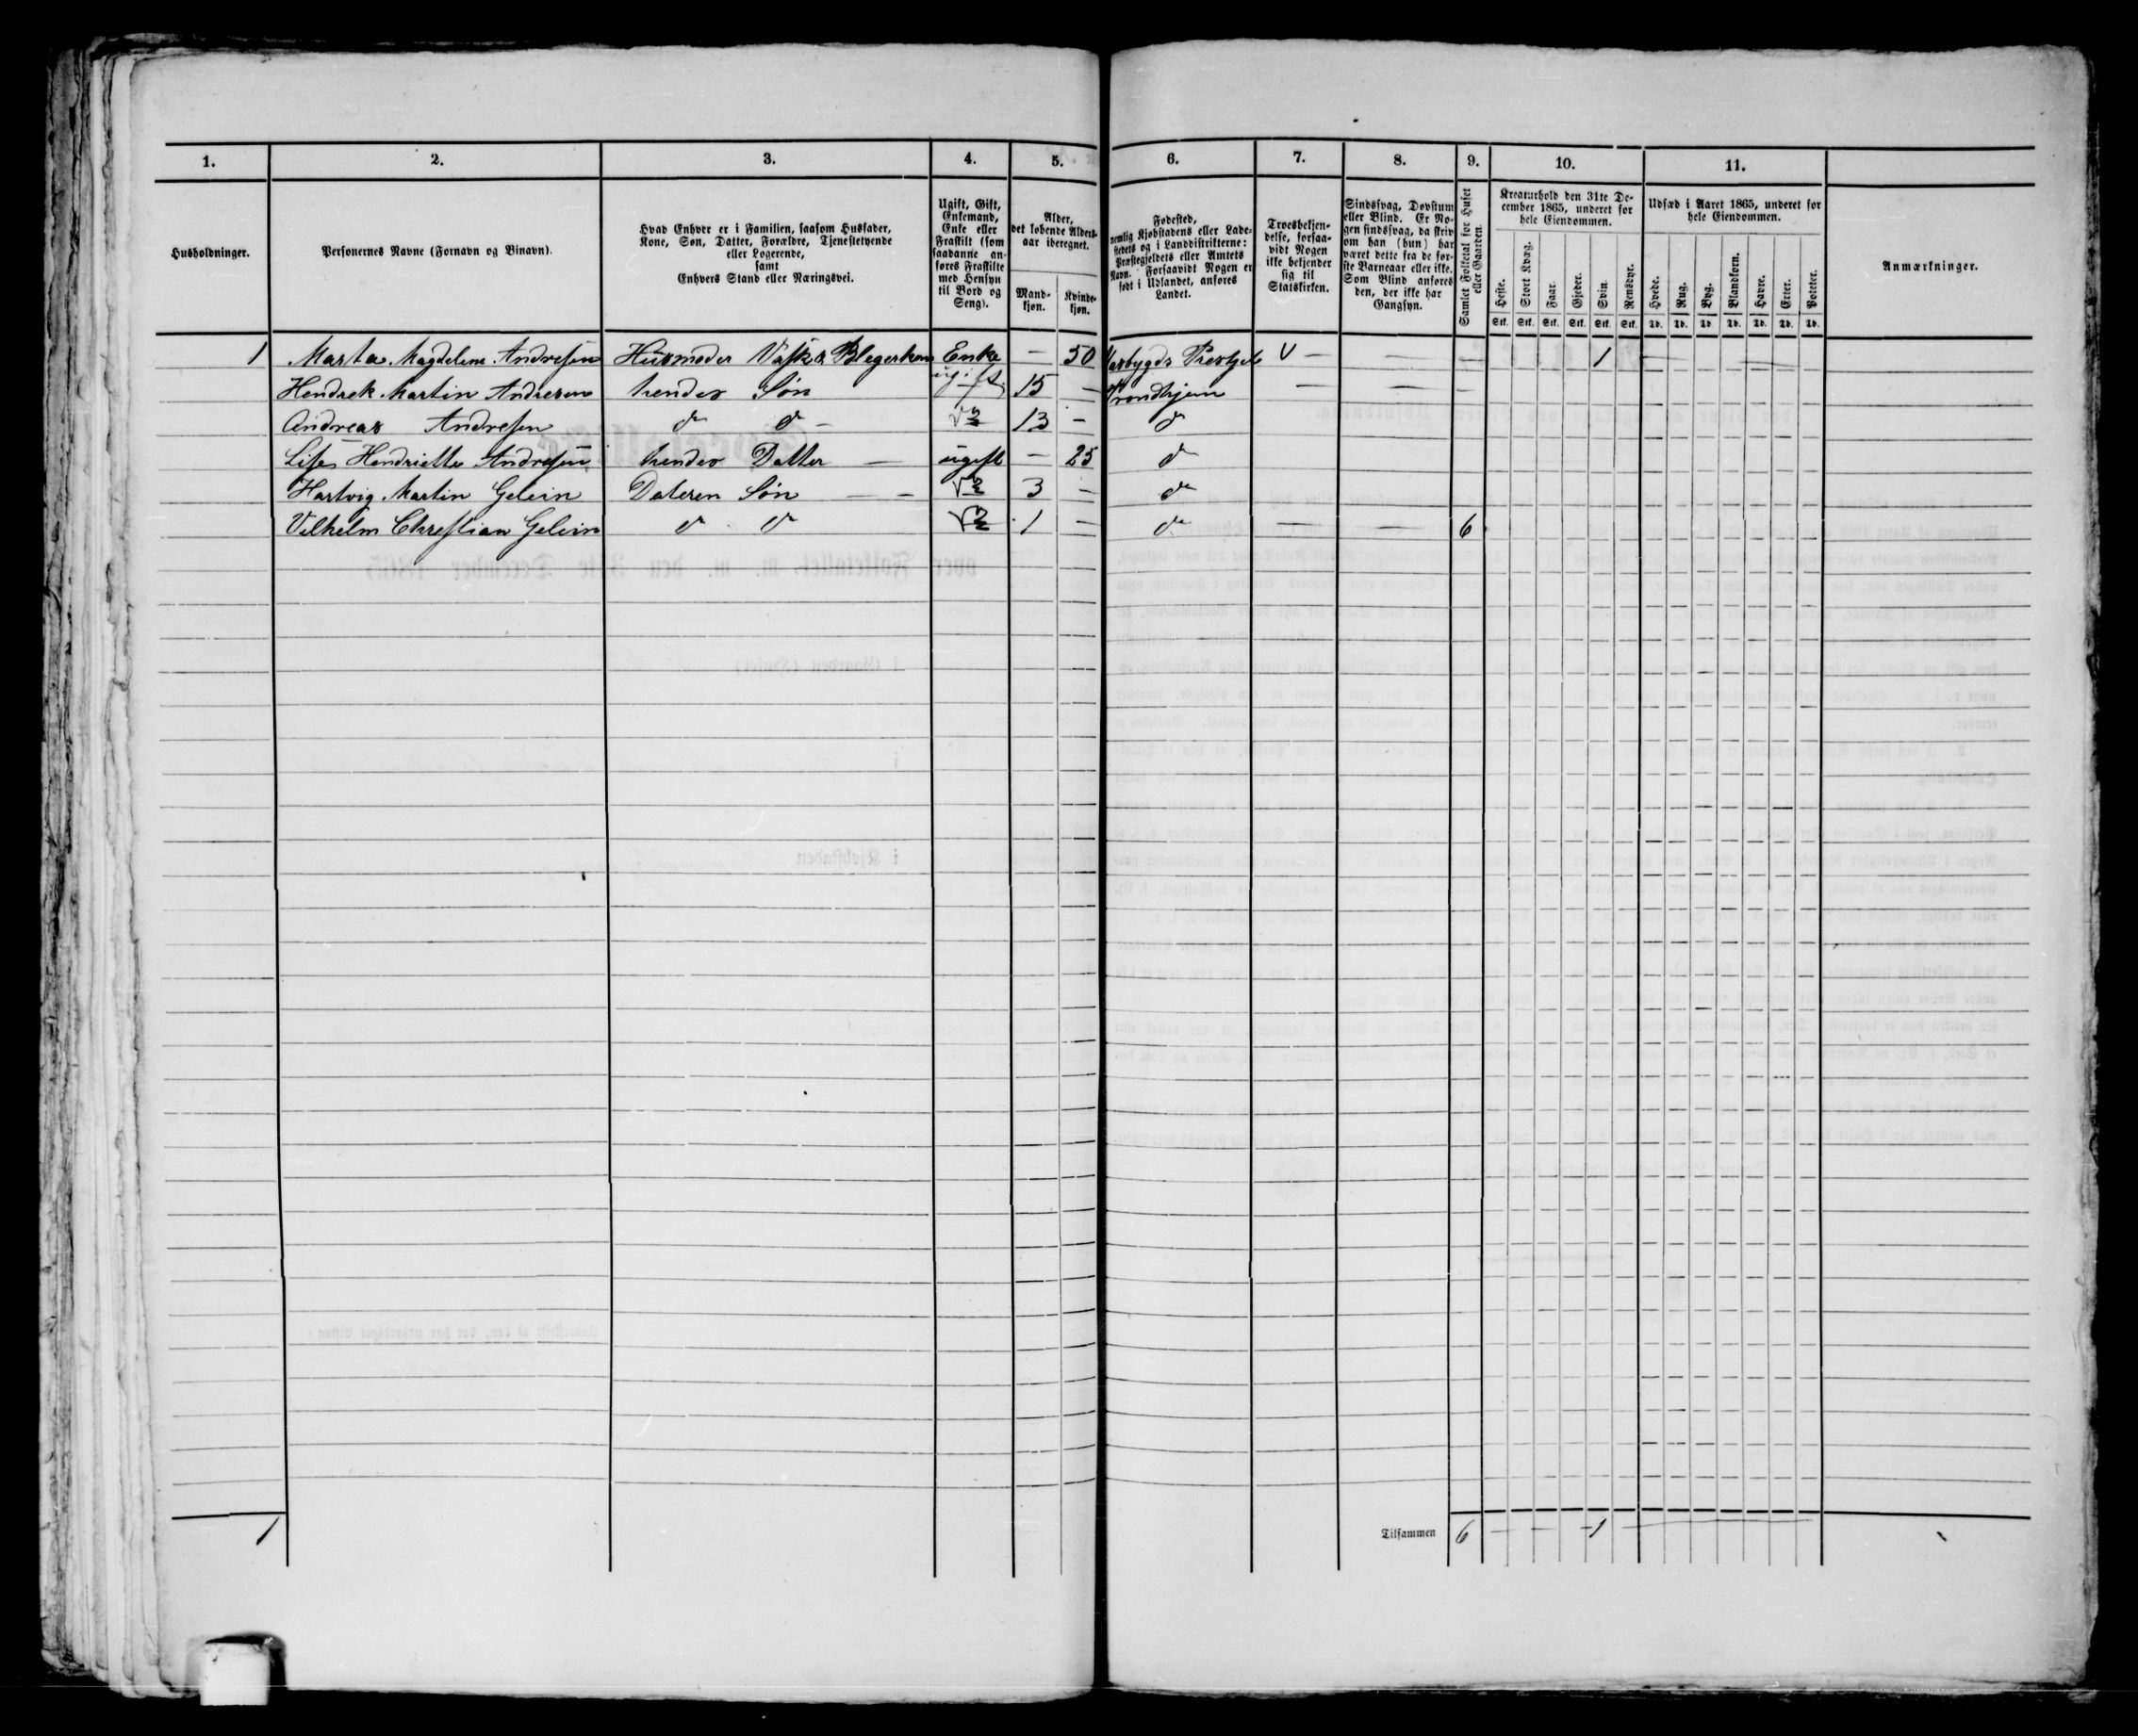 1. 2. 3. 4. 5. 6. 7. 8. 9. 10. 11.
Husholdninger.
Personernes Navne (Fornavn og Binavn).
Hvad Enhver er i Familien, saasom Husfader,
Kone, Søn, Datter, Forældre, Tjenestetyende
eller Logerende,
samt
Enhvers Stand eller Næringsvei.
Ugift, Gift,
Enkemand,
Enke eller
Fraskilt (som
saadanne an-
føres Fraskilte
med Hensyn
til Bord og
Seng).
Alder,
det løbende Alders-
aar iberegnet.
Mand-
kjøn.
Kvinde-
kjøn.
Fødested,
nemlig Kjøbstadens eller Lade-
stedets og i Landdistrikterne:
Præstegjeldets eller Amtets
Navn. Forsaavidt Nogen er
født i Udlandet, anføres
Landet.
Troesbekjen-
delse, forsaa-
vidt Nogen
ikke bekjender
sig til
Statskirken.
Sindssvag, Døvstum
eller Blind. Er No-
gen sindssvag, da skriv
om han (hun) har
været dette fra de før-
ste Barneaar eller ikke.
Som Blind anføres
den, der ikke har
Gangsyn.
Samlet Folketal for Huset
eller Gaarden.
Kreaturhold den 31te De-
cember 1865, underet for
hele Eiendommen.
Heste. Stort Kvæg. Faar. Gjeder. Svin. Rensdyr.
Stk. Stk. Stk. Stk. Stk. Stk.
Udsæd i Aaret 1865, underet for
hele Eiendommen.
Hvede. Rug. Byg. Blandkorn. Havre. Erter. Poteter.
Td. Td. Td. Td. Td. Td. Td.
Anmærkninger.
1 Marta Magdelene Andresen Husmoder Vask & Blegerkone Enke — 50 Prestgel V — — — 1 —
Hendrek Martin Andresen hendes Søn ugift 15 — Trondhjem — — —
Andreas Andresen do do — do 13 — do
Lise Henriette Andresen hendes Datter — ugift — 25 do
Hartvig Martin Gelein Dateren Søn — — do 3 — do
Vilhelm Chrestian Gelein do do do 1 — do — — 6
1 Tilsammen 6 — — — 1 —